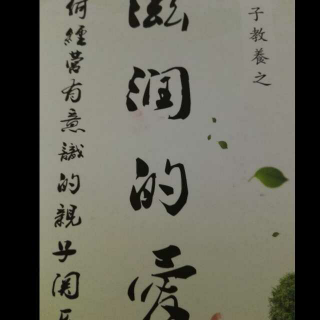 子教養之
滋润的愛
何經營有意識的親子関